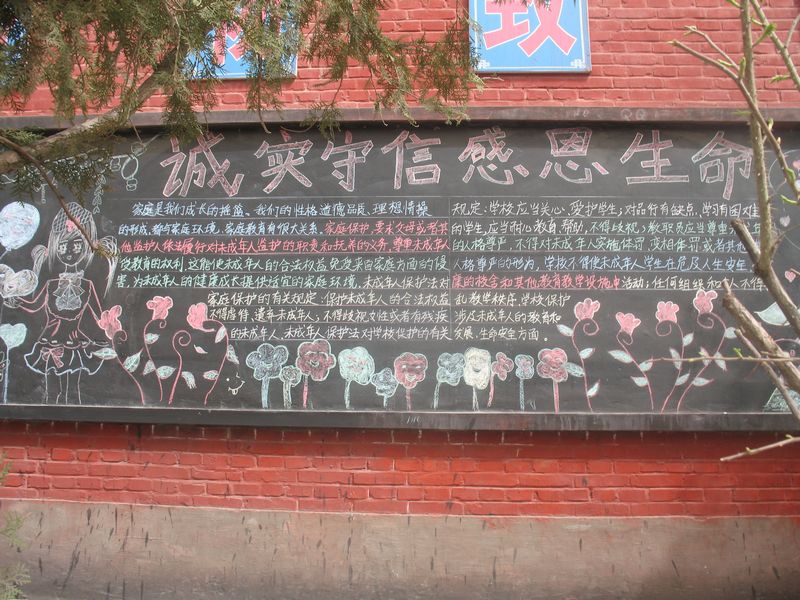 致
诚实守信感恩生命
家庭是我们成长的摇篮、我们的性格道德品质、理想情操
的形成,都与家庭环境、家庭教育有很大关系,家庭保护,要求父母或者其
他监护人依法履行对未成年人监护的职责和抚养的义务,尊重未成年人
受教育的权利,这能使未成年人的合法权益免受来自家庭方面的侵
害,为未成年人的健康成长提供适宜的家庭环境,未成年人保护法对
家庭保护的有关规定:保护未成年人的合法权益
不得虐待、遗弃未成年人;不得歧视女性或者有残疾
的未成年人,未成年人保护法对学校保护的有关
规定:学校应当关心、爱护学生;对品行有缺点、学习有困难
的学生,应当耐心教育、帮助,不得歧视;教职员应当尊重
的人格尊严,不得对未成年人实施体罚、变相体罚或者其他
人格尊严的行为,学校不得使未成年人学生在危及人生安全、
康的校舍和其他教育教学设施中活动;任何组织和 人不得
乱教学秩序,学校保护
涉及未成年人的教育和
发展、生命安全方面。